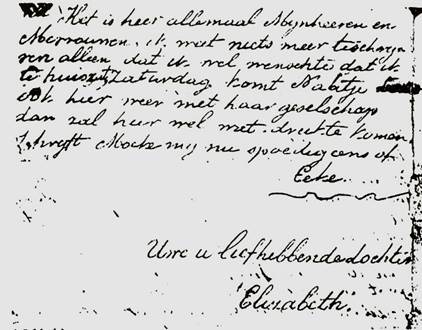 Het is heer allemaal Mynheeren en
Mevrouwen. ik weet niets meer te schryve
ren alleen dat ik wel wenschte dat ik
te huis Zaturdag komt Nabtje
ook hier weer met haar geselschap
dan zal hier wel met drukte koman
schryft Moeke my nu spoedig eens of
Eeke
Uwe u liefhebbende dochter
Elizabeth.